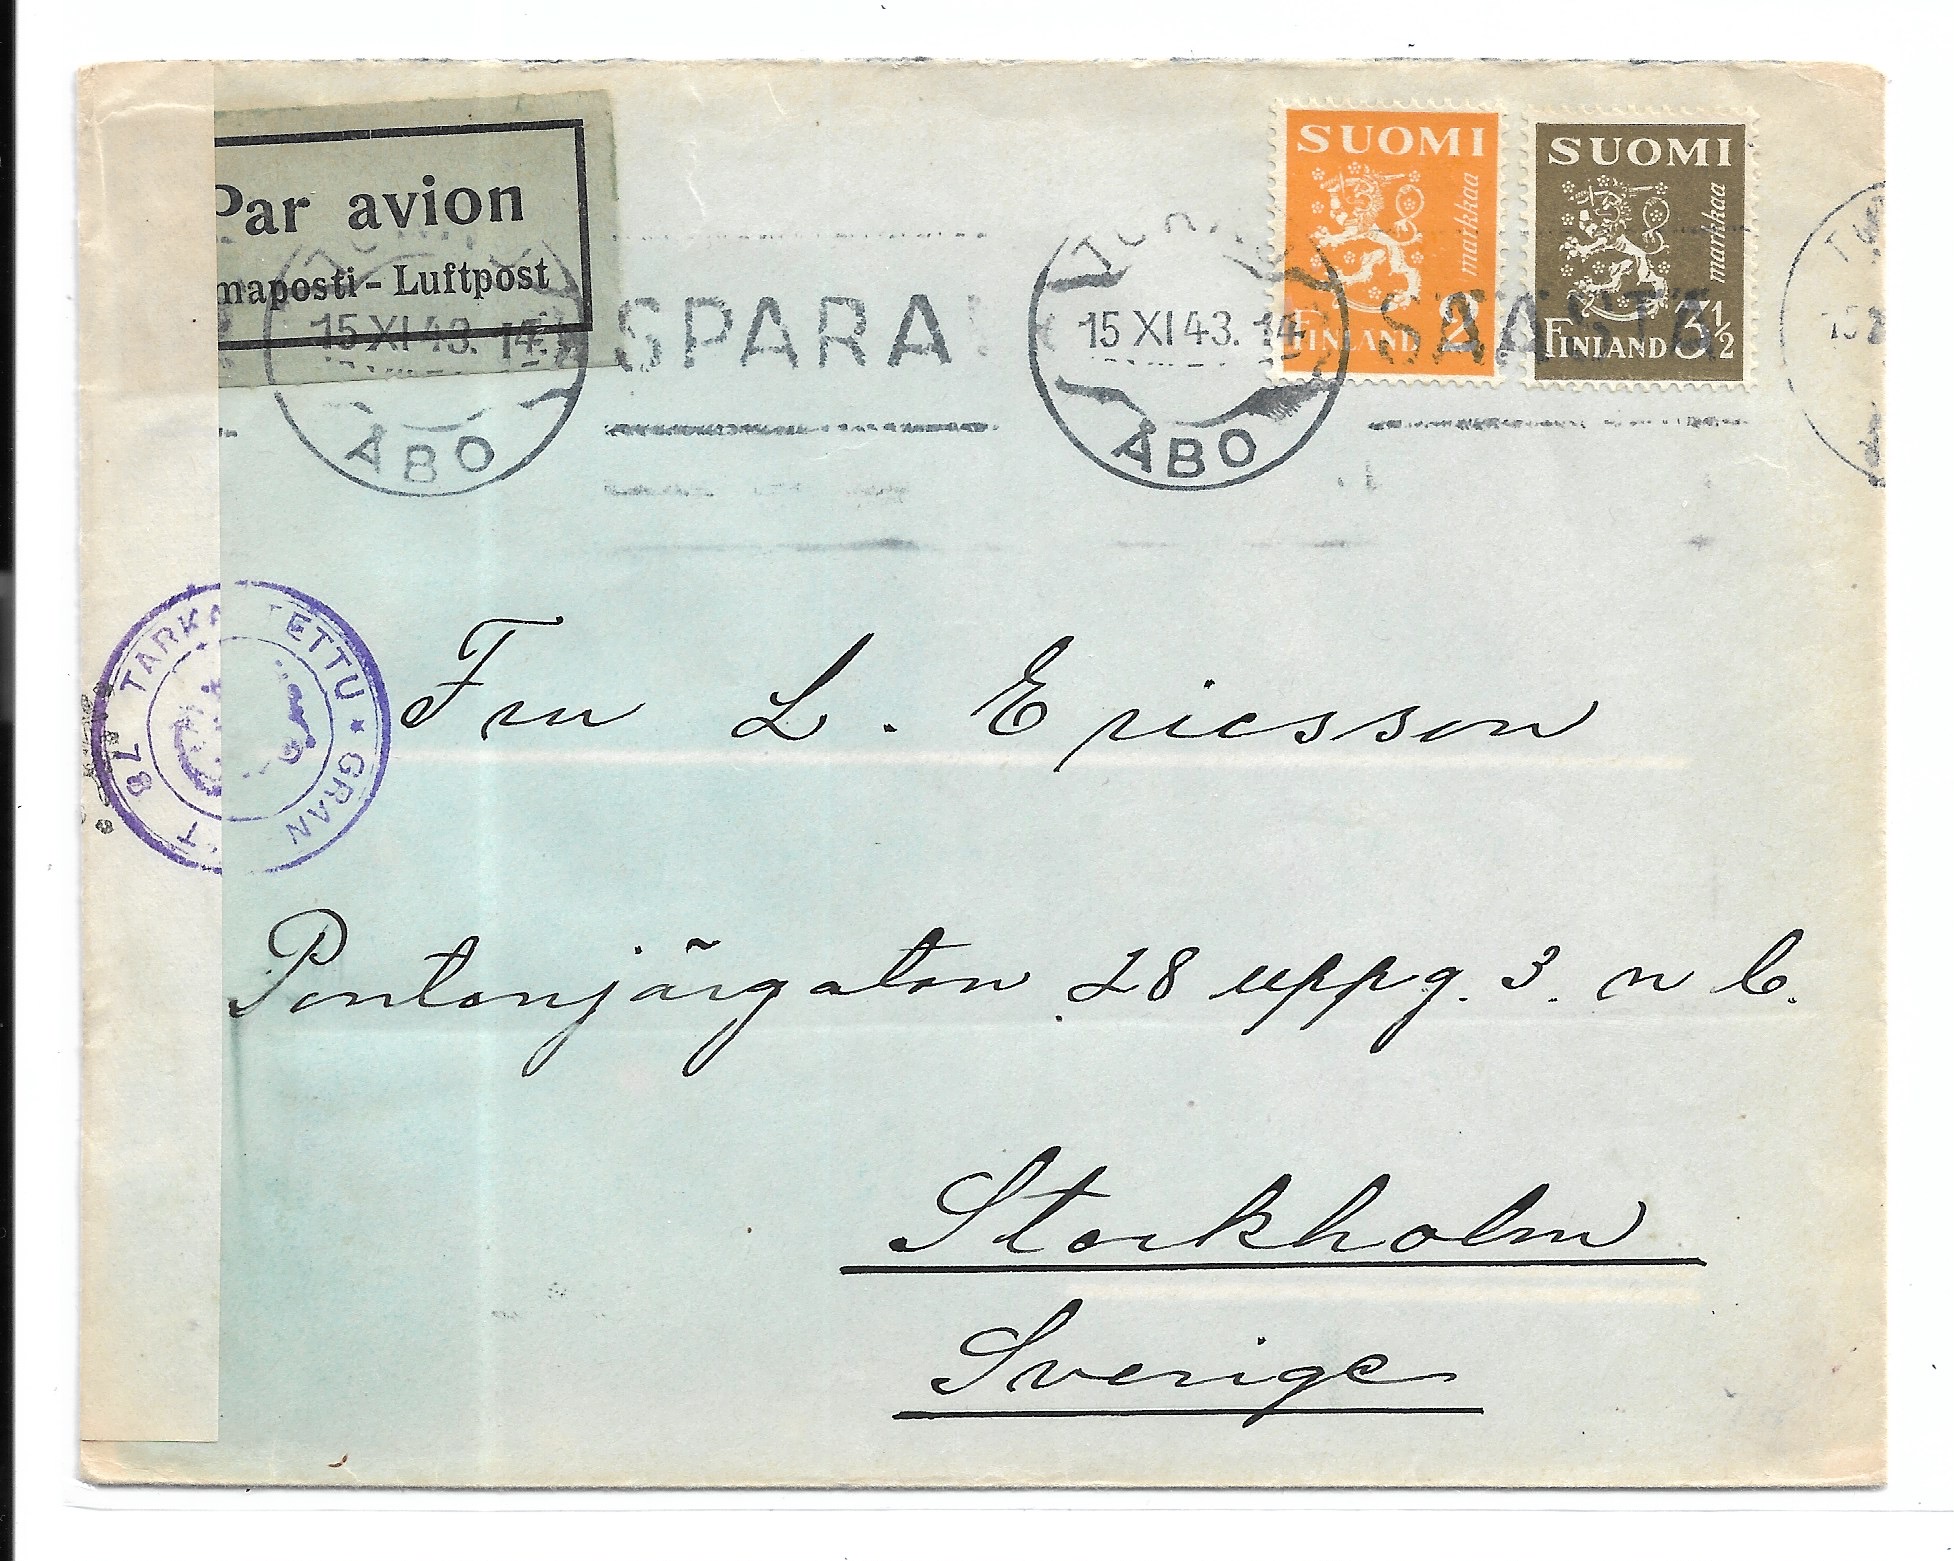 Par avion
maposti - Luftpost
SUOMI
markkaa
FINLAND 2
SUOMI
markkaa
FINLAND 3½
15 XI 43. 14
ÅBO
SPARA
15 XI 43. 14
ÅBO
SÄÄSTÄ
78 TARKA ETTU * GRAN T
Fru L. Ericsson
Pontonjärgatan 28 uppg. 3. n b.
Stockholm
Sverige